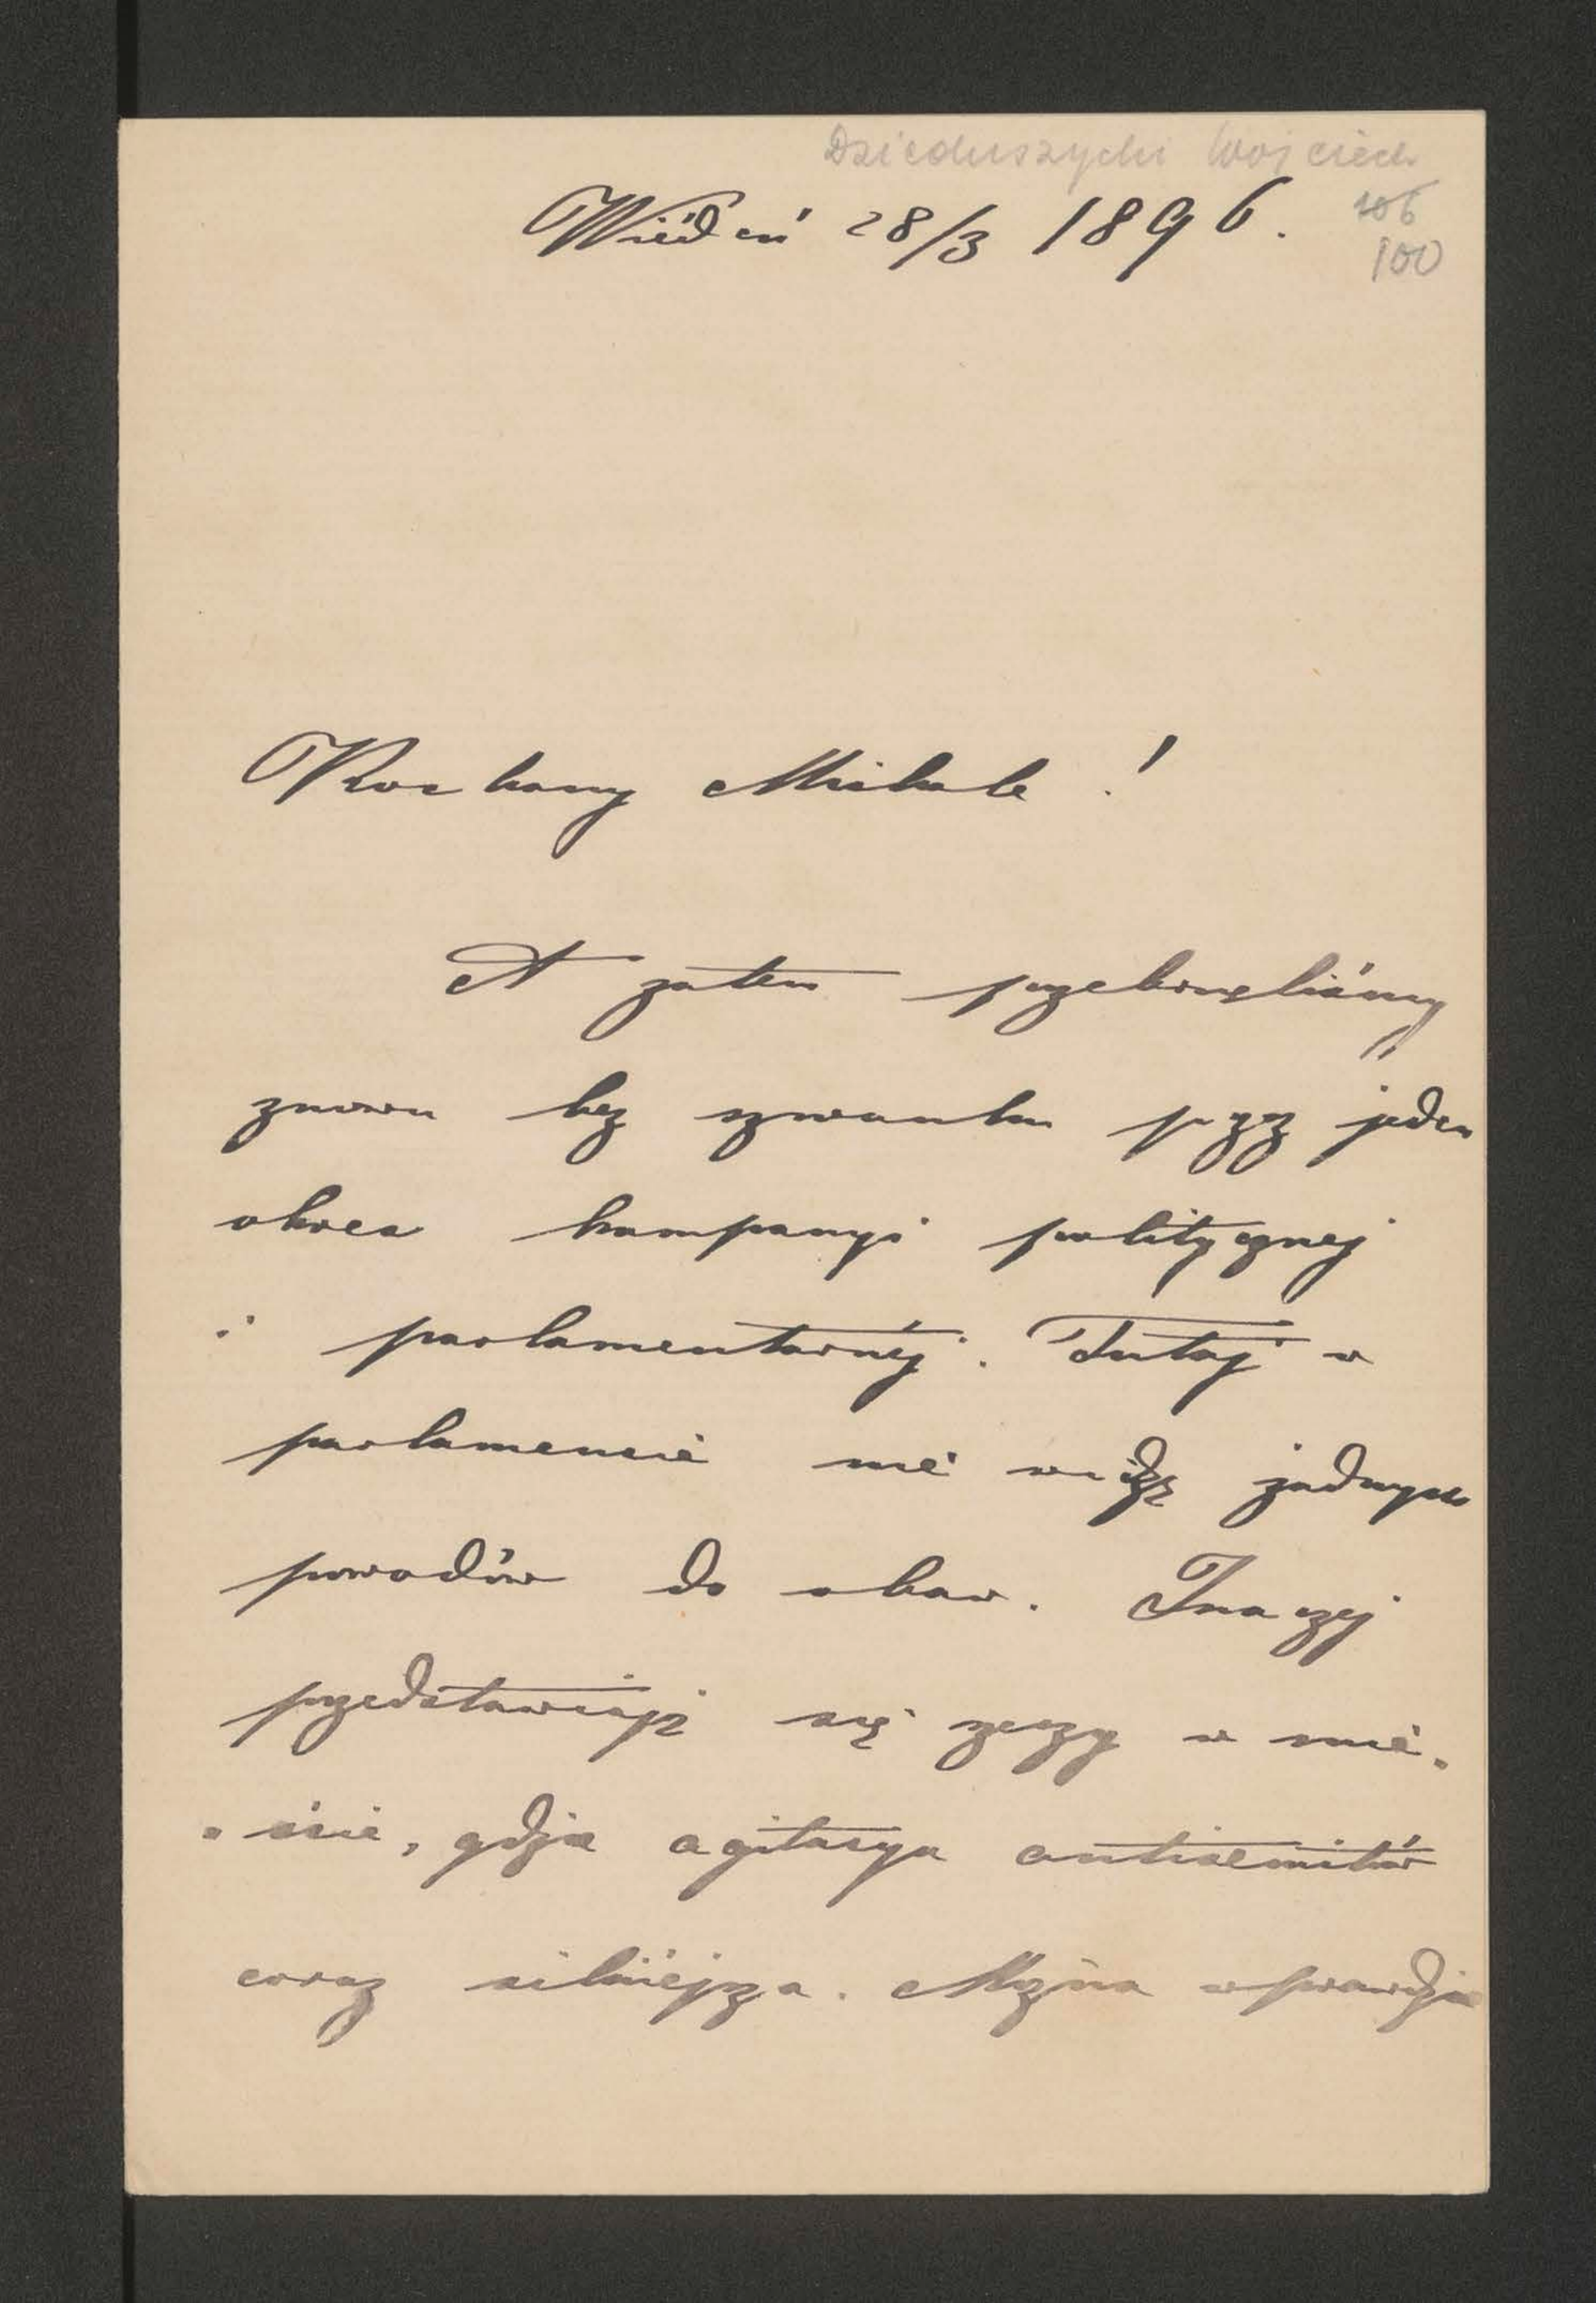 Dzieduszycki Wojciech
Wiédeń 28/3 1896.
106
100
Kochany Michale!
A zatem przebrnęliśmy
znowu bez szwanku przez jeden
okres kampanyi politycznej
i parlamentarnéj. Tutaj w
parlamencie nie widzę żadnych
powodów do obaw. Inaczej
przedstawiają się rzeczy w mie-
-ście, gdzie agitacya antisemitów
coraz silniejsza. Można wprawdzie